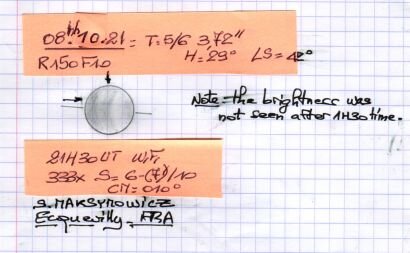 08th.10.21 = T=5/6 3,72"
R150F10 H=29° LS=42°
Note=the brightness was
not seen after 1H30 time.
21H30UT W21
333x S=6-(7)/10
CM=010°
S.MAKSYMOWICZ
Ecquevilly_FRA